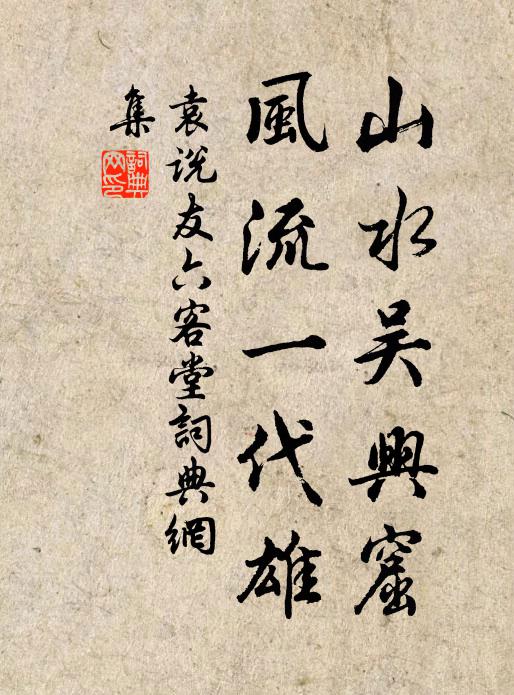 山水吴興窟
風流一代雄
袁说友六客堂詞典網
集
詞典
网印